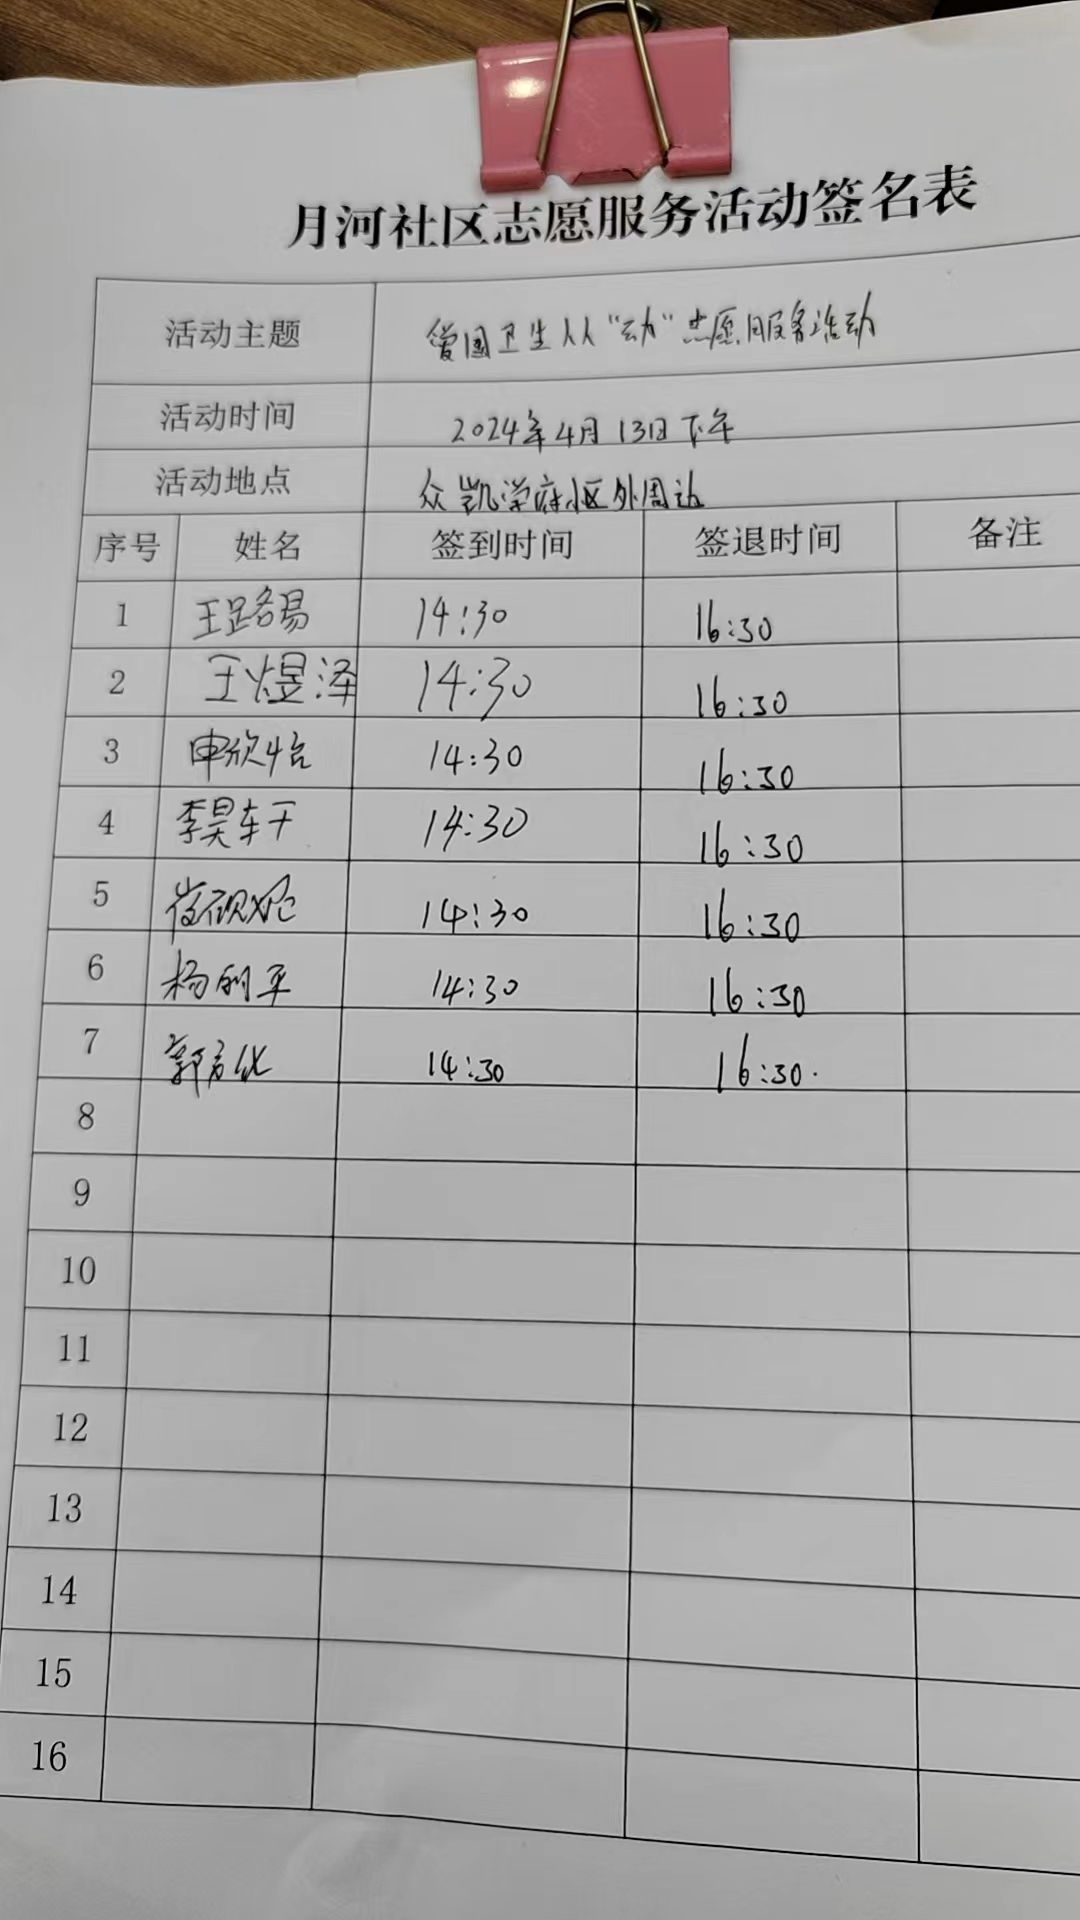 月河社区志愿服务活动签名表
活动主题 爱国卫生人人"动"志愿服务活动
活动时间 2024年4月13日下午
活动地点 众凯学府小区外周边
序号 姓名 签到时间 签退时间 备注
1 王路易 14:30 16:30
2 王煜泽 14:30 16:30
3 申欣怡 14:30 16:30
4 李昊轩 14:30 16:30
5 14:30 16:30
6 杨利平 14:30 16:30
7 郭 14:30 16:30.
8
9
10
11
12
13
14
15
16